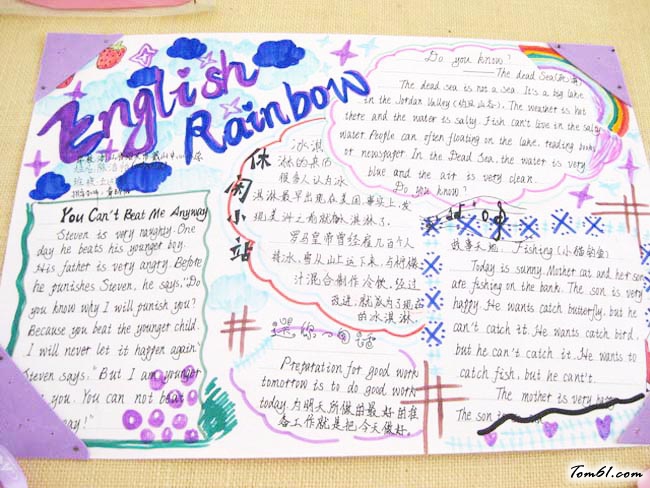 English
Rainbow
You Can't Beat Me Anyway
Steven is very naughty. One
day he beats his younger boy.
His father is very angry. Before
he punishes Steven, he says,"Do
you know why I will punish you?
Because you beat the younger child.
I will never let it happen again."
Steven says," But I am younger
you. You can not beat
休闲小站
冰淇
淋的来历
很多人认为冰
淇淋最早出现在美国,事实上,发
现是许之前就有冰淇淋了。
罗马皇帝曾经雇几百个人
将冰,雪从山上运下来,与柠檬
汁混合制作冷饮,经过
改进,就成为了现在
的冰淇淋.
送你一句话
Preparation for good work
tomorrow is to do good work
today.为明天所做的最好的准
备工作就是把今天做好.
Do you know?
The dead Sea(死海)
The dead sea is not a sea. It's a big lake
in the Jordan Valley (约旦山谷). The weather is hot
there and the water is salty. Fish can't live in the salty
water. People can often floating on the lake, reading books
or newspaper. In the Dead Sea, the water is very
blue and the air is very clean.
Do you know?
故事天地 Fishing (小猫钓鱼)
Today is sunny. Mother cat and her son
are fishing on the bank. The son is very
happy. He wants catch butterfly, but he
can't catch it. He wants catch bird,
but he can't catch it. He wants to
catch fish, but he can't.
The mother is very happy
The son is
Tom61.com